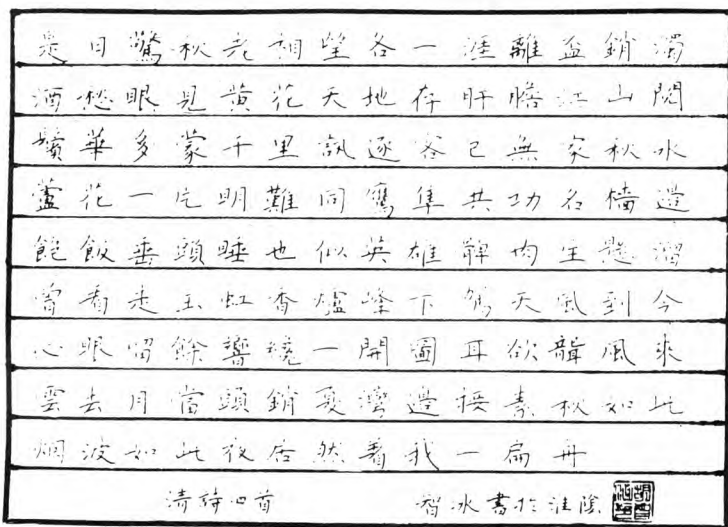 是日驚秋老相望各一涯離盃銷濁
酒愁眼見黃花天地存肝膽江山閱
鬢華多蒙千里訊逐客已無家秋水
蘆花一片明難同鷹隼共功名檣邊
飽飯垂頭睡也似英雄髀肉生懸溜
嘗看走玉虹香爐峰下駕天風到今
心眼留餘響纔一開圖耳欲聾風來
雲去月當頭銷夏灣邊接素秋如此
烟波如此夜居然著我一扁舟
清詩四首 智冰書於淮陰